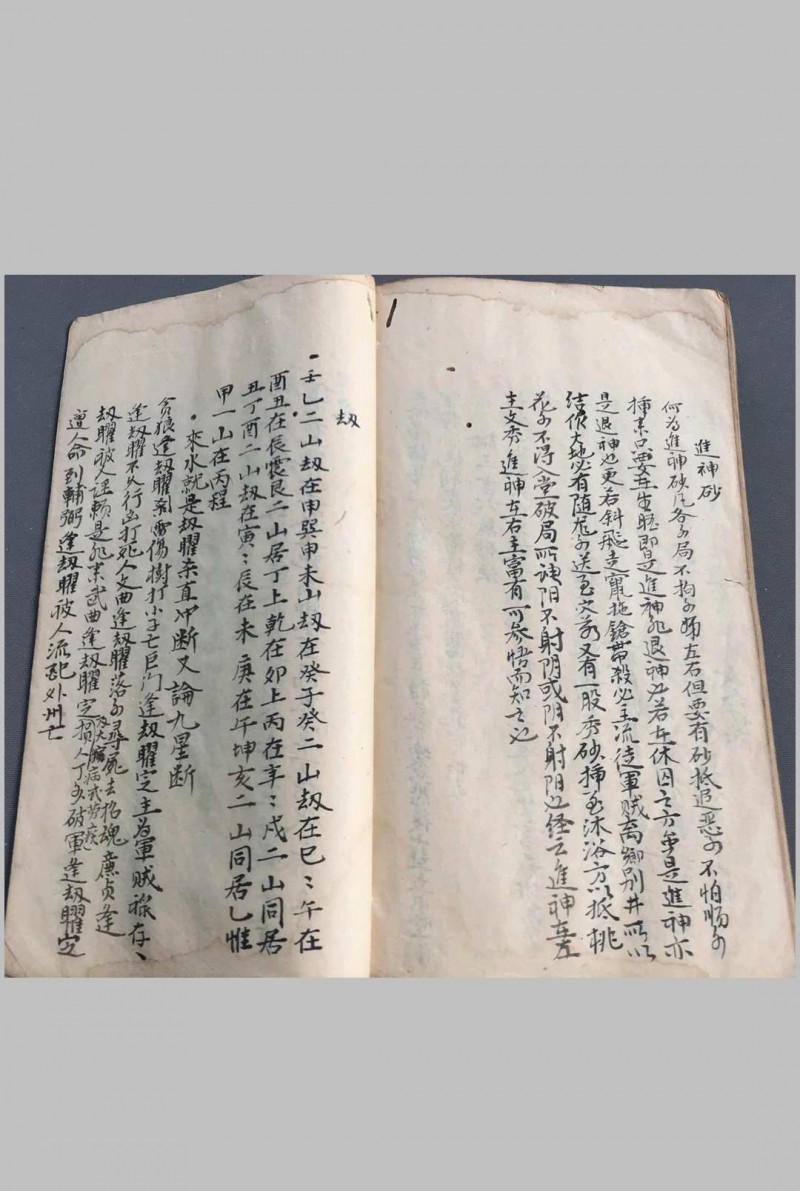 進神砂
何为進神砂凡各水局不拘水归左右但要有砂抵迟恶水不怕顺水
揷来只要在生旺即是進神水退神必若在休囚之方虽是進神亦
是退神也更若斜飛走竄拖鎗帶殺必主流徒軍贼离鄉别井所以
结作大地必有随龙水送至穴前又有一股秀砂揷至沐浴方以抵桃
花水不得入堂破局所谓阳不射阴或阴不射阳也经云進神在左
主文秀進神左右主富有可参悟而知之也
劫
壬乙二山劫在申巽申未山劫在癸子癸二山劫在巳〻午在
酉丑在辰震艮二山居丁上乾在卯上丙在辛〻戌二山同居
丑丁酉二山劫在寅〻辰在未庚在午坤亥二山同居乙惟
甲一山在丙程
來水就是劫曜来直冲断又論九星断
贪狼逢劫曜剥雷傷樹打小子亡巨门逢劫曜定主为軍贼禄存〻
逢劫曜不久行凶打死人文曲逢劫曜落水尋屍去招魂廉贞逢
劫曜被人诬賴是非来武曲逢劫曜定损人丁女破軍逢劫曜定
遭人命到輔弼逢劫曜被人流配外州亡